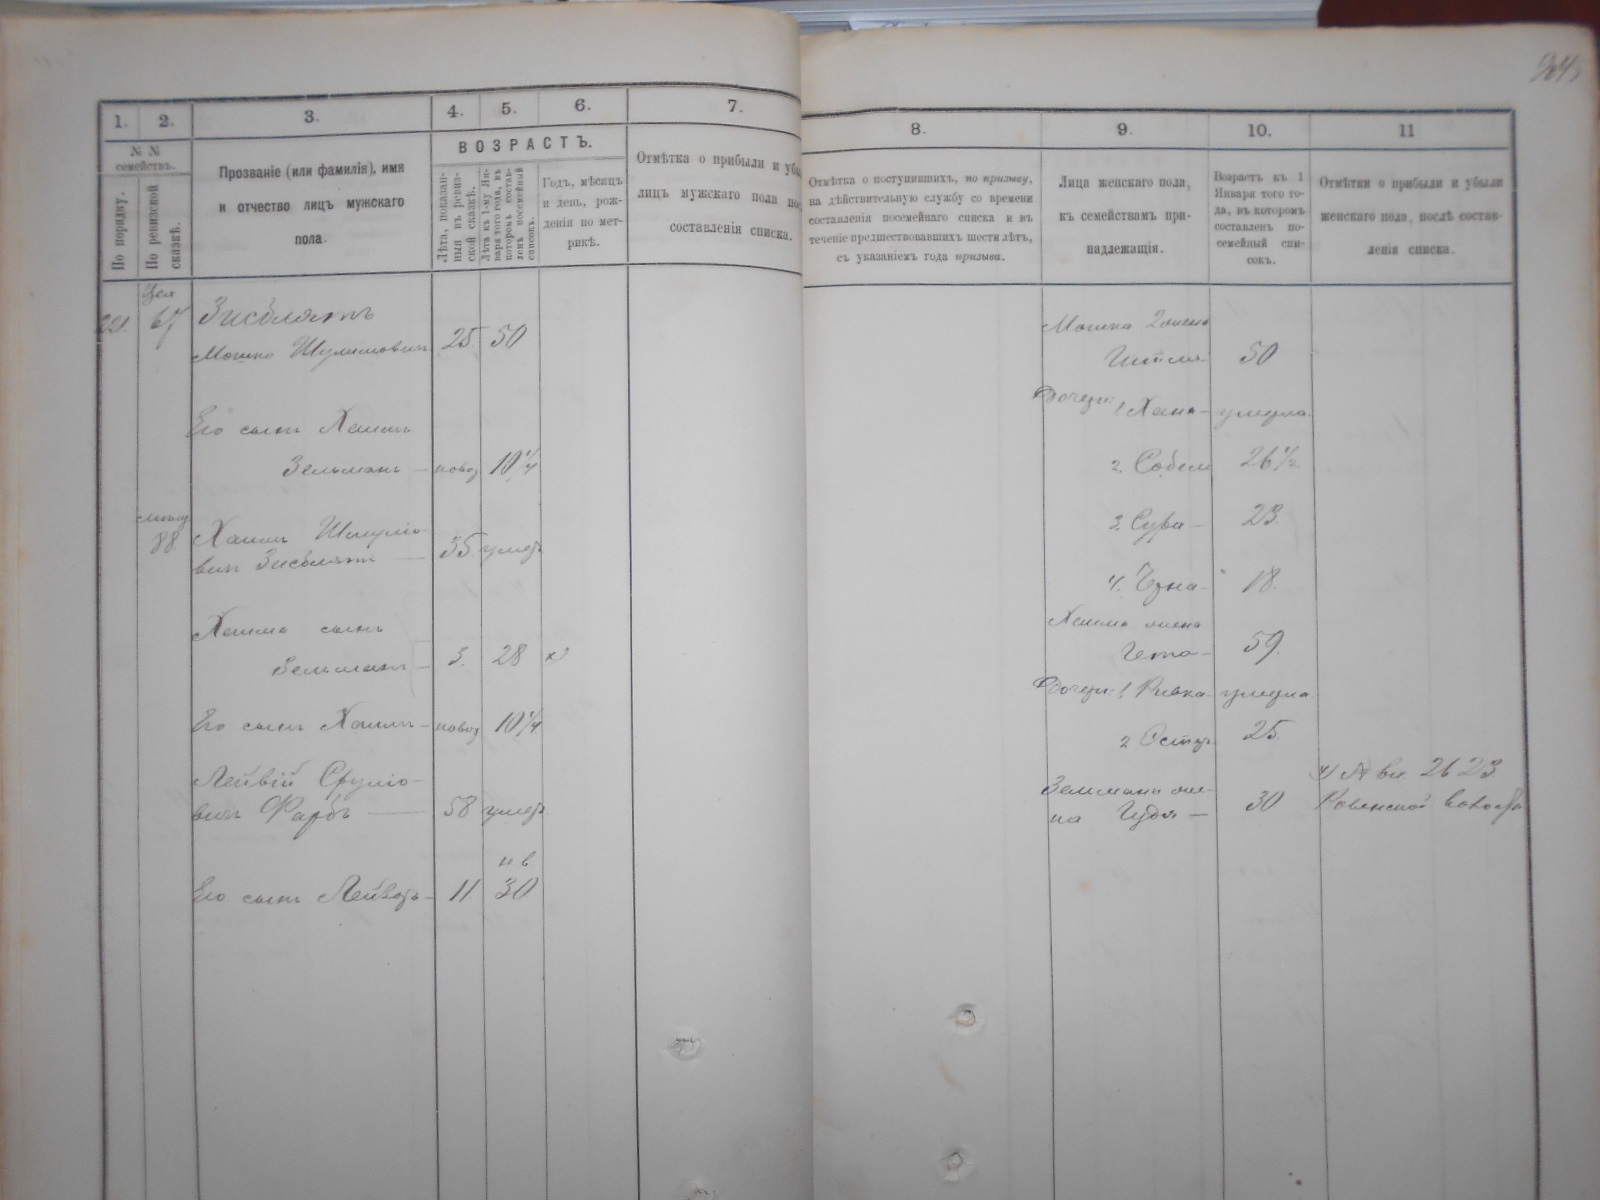 1.
2.
3.
4.
5.
6.
7.
№ №
семействъ.
По порядку.
По ревизской
сказкѣ.
Прозваніе (или фамилія), имя
и отчество лицъ мужскаго
пола.
ВОЗРАСТЪ.
Лѣта, показан-
ныя въ ревиз-
ской сказкѣ.
Лѣта къ 1-му Ян-
варя того года, въ
которомъ состав-
ленъ посемейный
списокъ.
Годъ, мѣсяцъ
и день, рож-
денія по мет-
рикѣ.
Отмѣтка о прибыли и убы
лицъ мужскаго пола по
составленія списка.
67
Зисблятъ
Мошко Шулимовичъ 25 50
Его сынъ Хаимъ
Зельманъ 10 1/4
88
Хаимъ
вичъ Зисблятъ 35 умеръ
Хаима сынъ
Зельманъ 3. 28
Его сынъ Хаимъ 10 1/4
Лейвій Сруліо-
вичъ Фарбъ 58 умеръ
Его сынъ 11 30
8.
9.
10.
11
Отмѣтка о поступившихъ, по призыву,
на дѣйствительную службу со времени
составленія посемейнаго списка и въ
теченіе предшествовавшихъ шести лѣтъ,
съ указаніемъ года призыва.
Лица женскаго пола,
къ семействамъ при-
надлежащія.
Возрастъ къ 1
Января того го-
да, въ которомъ
составленъ по-
семейный спи-
сокъ.
Отмѣтки о прибыли и убыли
женскаго пола, послѣ состав-
ленія списка.
Мошка 2 жена
50
Дочери: 1 Хана умерла
2. 26 1/2
3. Сура 23
4. Черна 18
Хаима жена
59.
Дочери: 1 Ривка умерла
2 25
Зельмана же-
на 30
2623
Ровенской